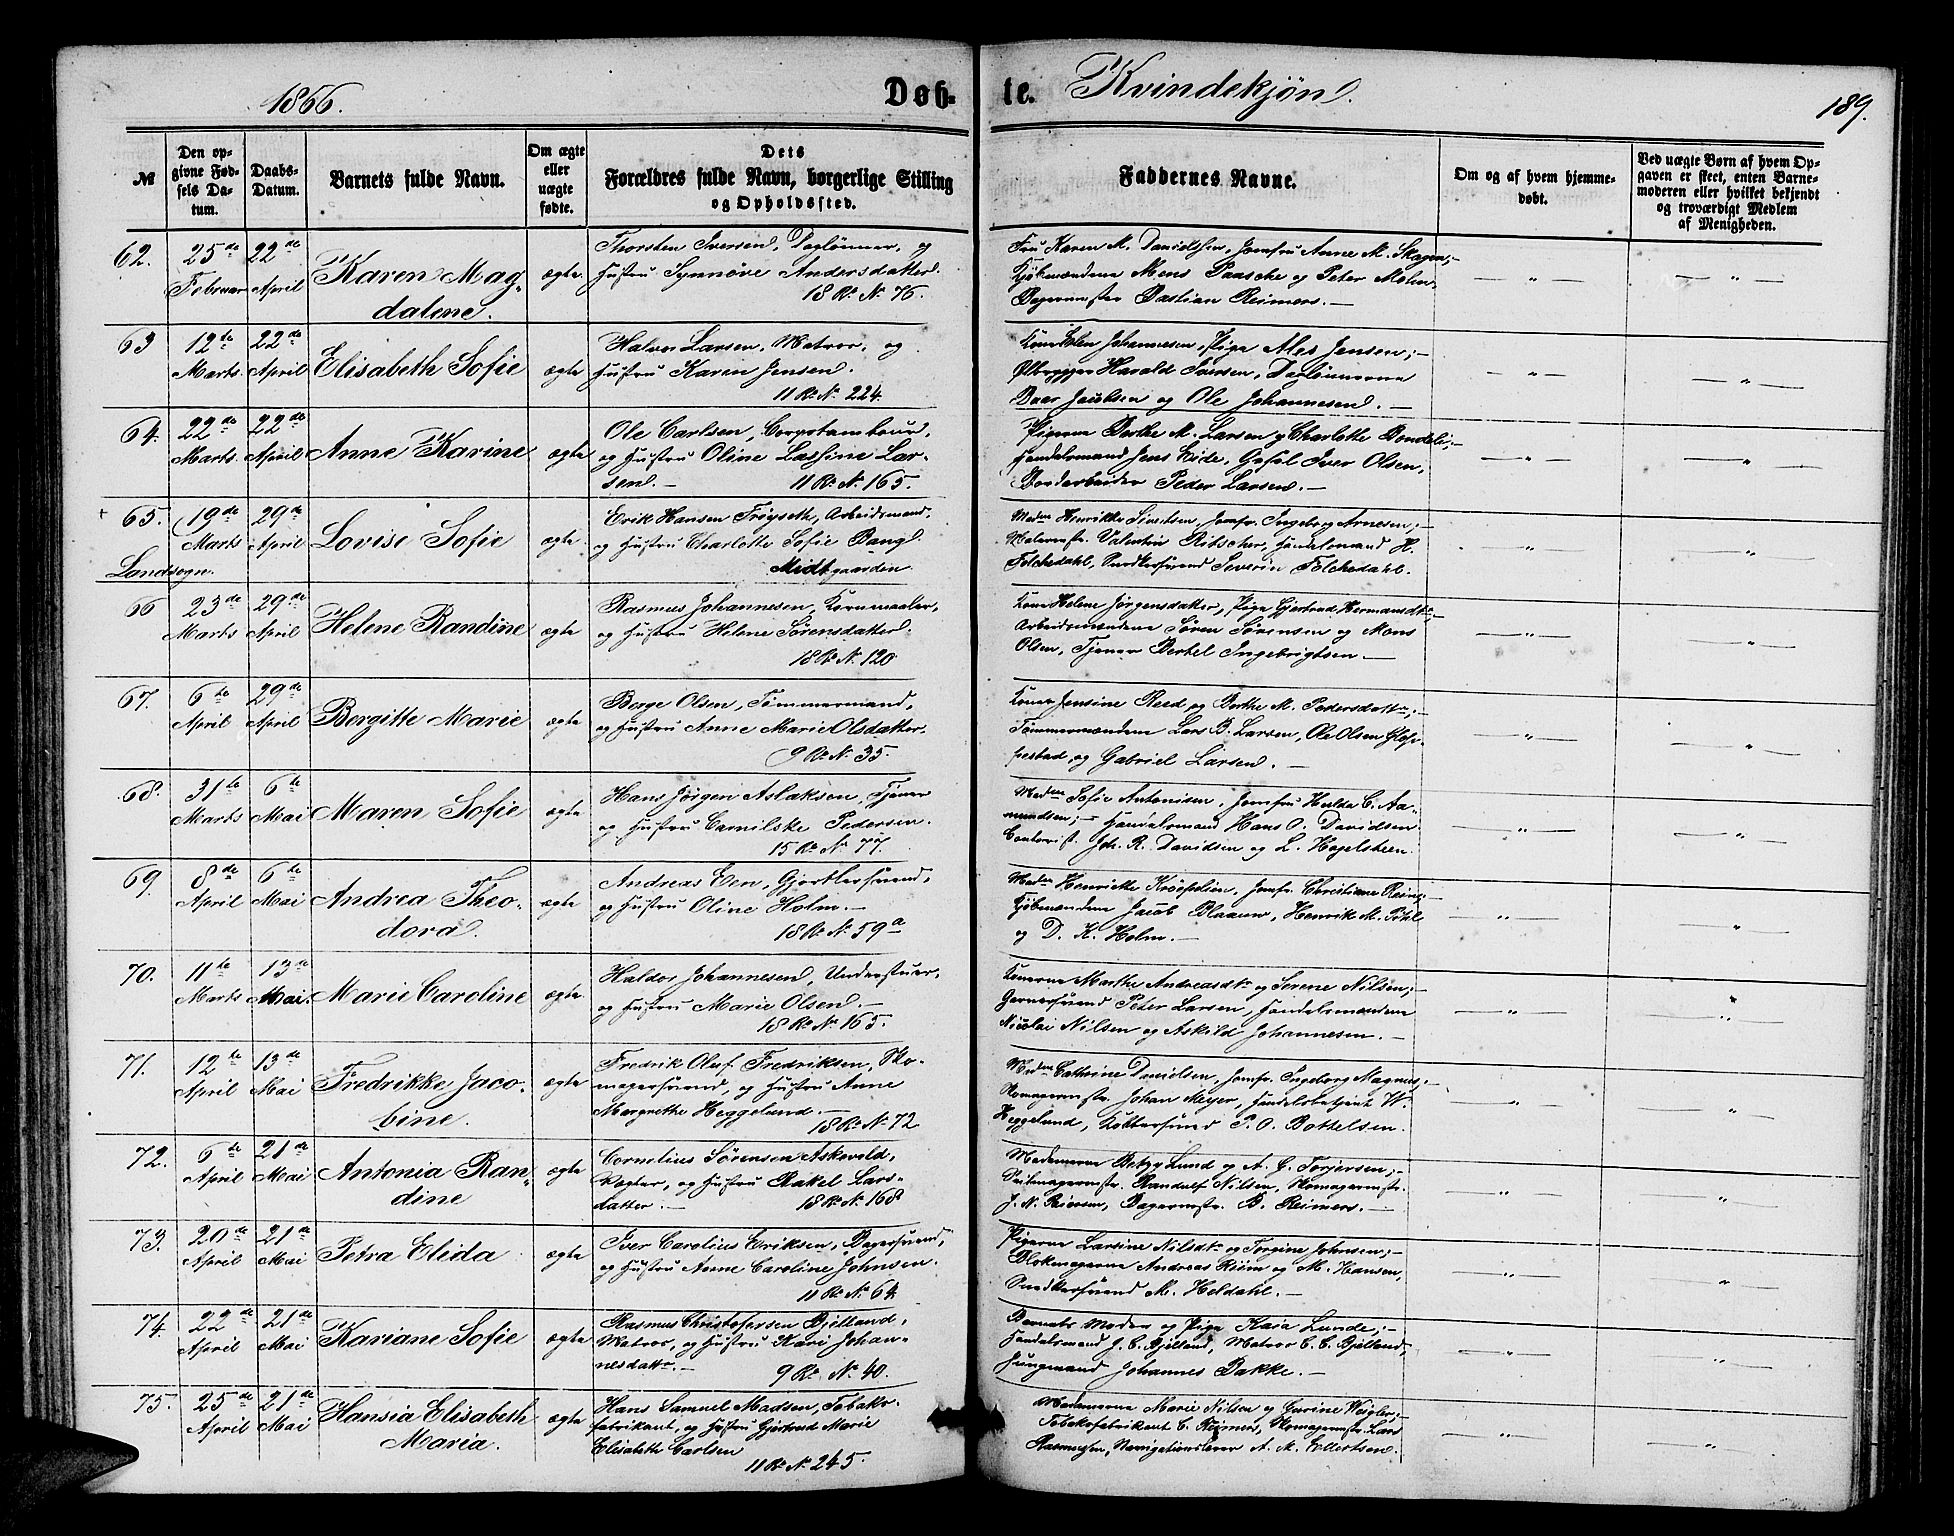 1866.
Døb-
te.
Kvindekjøn.
189.
№
Den op-
givne Fød-
sels Da-
tum.
Daabs-
Datum.
Barnets fulde Navn.
Om ægte
eller
uægte
fødte.
Dets
Forældres fulde Navn, borgerlige Stilling
og Opholdssted.
Faddernes Navne.
Om og af hvem hjemme-
døbt.
Ved uægte Børn af hvem Op-
gaven er skeet, enten Barne-
moderen eller hvilket bekjendt
og troværdigt Medlem
af Menigheden.
62.
25de
Februar
22de
April
Karen Mag-
dalene.
ægte
Thorsten Iversen, Daglønner, og
Hustru Synnøve Andersdatter.
18 R. N. 76.
Fru Karen M. Danielsen, Jomfru Anne M. Skagen;-
Kjøbmændene Mons Paasche og Peter Mohn,
Bagermester Bastian Reimers.-
63
12te
Marts.
22de
April
Elisabeth Sofie
ægte
Halvor Larsen, Matros, og
Hustru Karen Jensen.
11 R. N. 224.
Johannesen, Pige Jensen;-
Ølbrygger Harald Iversen, Daglønnerne
Baar Jacobsen og Ole Johannesen.-
64.
22de
Marts.
22de
April
Anne Karine
ægte
Ole Carlsen, Corpstambour,
og Hustru Oline Lassine Lar-
sen.- 11 R. N. 165.
Pigerne Berthe M. Larsen og Charlotte
Handelsmand Jens Eide, Iver Olsen,
Peder Larsen.-
65.
19de
Marts
29de
April
Landsogn.
Lovise Sofie
ægte
Erik Hansen Frøyseth, Arbeidsmand,
og Hustru Charlotte Sofie Bang.
Midtgaarden.
Madm Henrikke Sivertsen, Jomfr. Ingeborg Arnesen;-
Malermstr. Valentin Ritscher, Handelsmand H.
Folchedahl, Snedkersvend Severin Folchedahl.
66
23de
Marts
29de
April
Helene Randine
ægte
Rasmus Johannesen, Kornmaaler,
og Hustru Helene Sørensdatter.
18 R. N. 120
Kone Helene Jørgensdatter, Pige Gjertrud Hermansdtr,
Arbeidsmændene Søren Sørensen og Mons
Olsen, Tjener Bertel Ingebrigtsen.-
67.
6te
April
29de
April
Bergitte Marie
ægte
Børge Olsen, Tømmermand,
og Hustru Anne Marie Olsdatter.
9 R. N. 35.
Koner Jensine Reed og Berthe M. Pedersdatter;-
Tømmermændene Lars B. Larsen, Ole Olsen Glop-
pestad, og Gabriel Larsen.-
68.
31te
Marts
6te
Mai
Maren Sofie
ægte
Hans Jørgen Aslaksen, Tjener
og Hustru Cornilske Pedersen.
15 R. N. 77.
Madm Sofie Antonisen, Jomfru Hulda C. Aa-
mundsen;- Handelsmand Hans O. Davidsen
Contorist. Joh. R. Davidsen og L. Hagelsteen.
69.
8de
April
6te
Mai
Andrea Theo-
dora.
ægte
Andreas Een, Gjørtlersvend,
og Hustru Oline Holm.-
18 R. N. 59a
Madm Henriette Jomfr. Christiane
Kjøbmændene Jacob Blaauw, Henrik M. Pihl
og D. K. Holm.-
70.
11te
Marts
13de
Mai
Marie Caroline
ægte
Haldor Johannesen, Understuer,
og Hustru Marie Olsen.-
18 R. N. 165.
Konerne Marthe Andreasdtr og Serene Nilsen;-
Garversvend Peter Larsen, Handelsmændene
Nicolai Nilsen og Askild Johannesen.-
71.
12te
April
13de
Mai
Fredrikke Jaco-
bine.
ægte
Fredrik Oluf Fredriksen, Sko-
magersvend, og Hustru Anne
Margrethe Heggelund.-
18 R. N. 72
Madm Cathrine Danielsen, Jomfr. Ingeborg Magnus;-
Skomagermstr. Johan Meyer, Handelsbetjent W.
Heggelund, P. O. Bottelsen.
72.
6te
April
21de
Mai
Antonia Ran-
dine
ægte
Cornelius Sørensen Askevold,
Vægter, og Hustru Rakel Lars-
datter.- 18 R. N. 168
Madamerne Betzy Lund og A. G. Torjersen;-
Seilmagermstr. Randulf Nilsen, Skomagermstr.
J. N. Reiersen, Bagermstr. B. Reimers.-
73.
20de
April
21de
Mai
Petra Elida
ægte
Iver Carolius Eriksen, Bagersvend,
og Hustru Anne Caroline Johnsen.
11 R. N. 64.
Pigerne Larsine Nilsdtr og Torgine Johnsen;-
Blokmagerne Andreas Riim og M. Hansen,
Snedkersvend M. Heldahl.-
74.
22de
April
21de
Mai
Kariane Sofie
ægte
Rasmus Christofersen Bjelland,
Matros, og Hustru Kari Johan-
nesdattr.-
9 R. N. 40.
Barnets Moder og Pige Kaia Lunde;-
Handelsmand J. C. Bjelland, Matros C. C. Bjelland,
Ungemand Johannes Bakke.-
75.
25de
April
21de
Mai
Hansia Elisabeth
Maria.
ægte
Hans Samuel Madsen, Tobaks-
fabrikant, og Hustru Gjertrud Marie
Elisabeth Carlsen
11 R. N. 245.
Madamerne Marie Nilsen og Gurine Weigler;-
Tobaksfabrikant C. Reimers, Skomagermstr. Lars
Rasmussen, Navigationslærer A. M. Ellertsen.